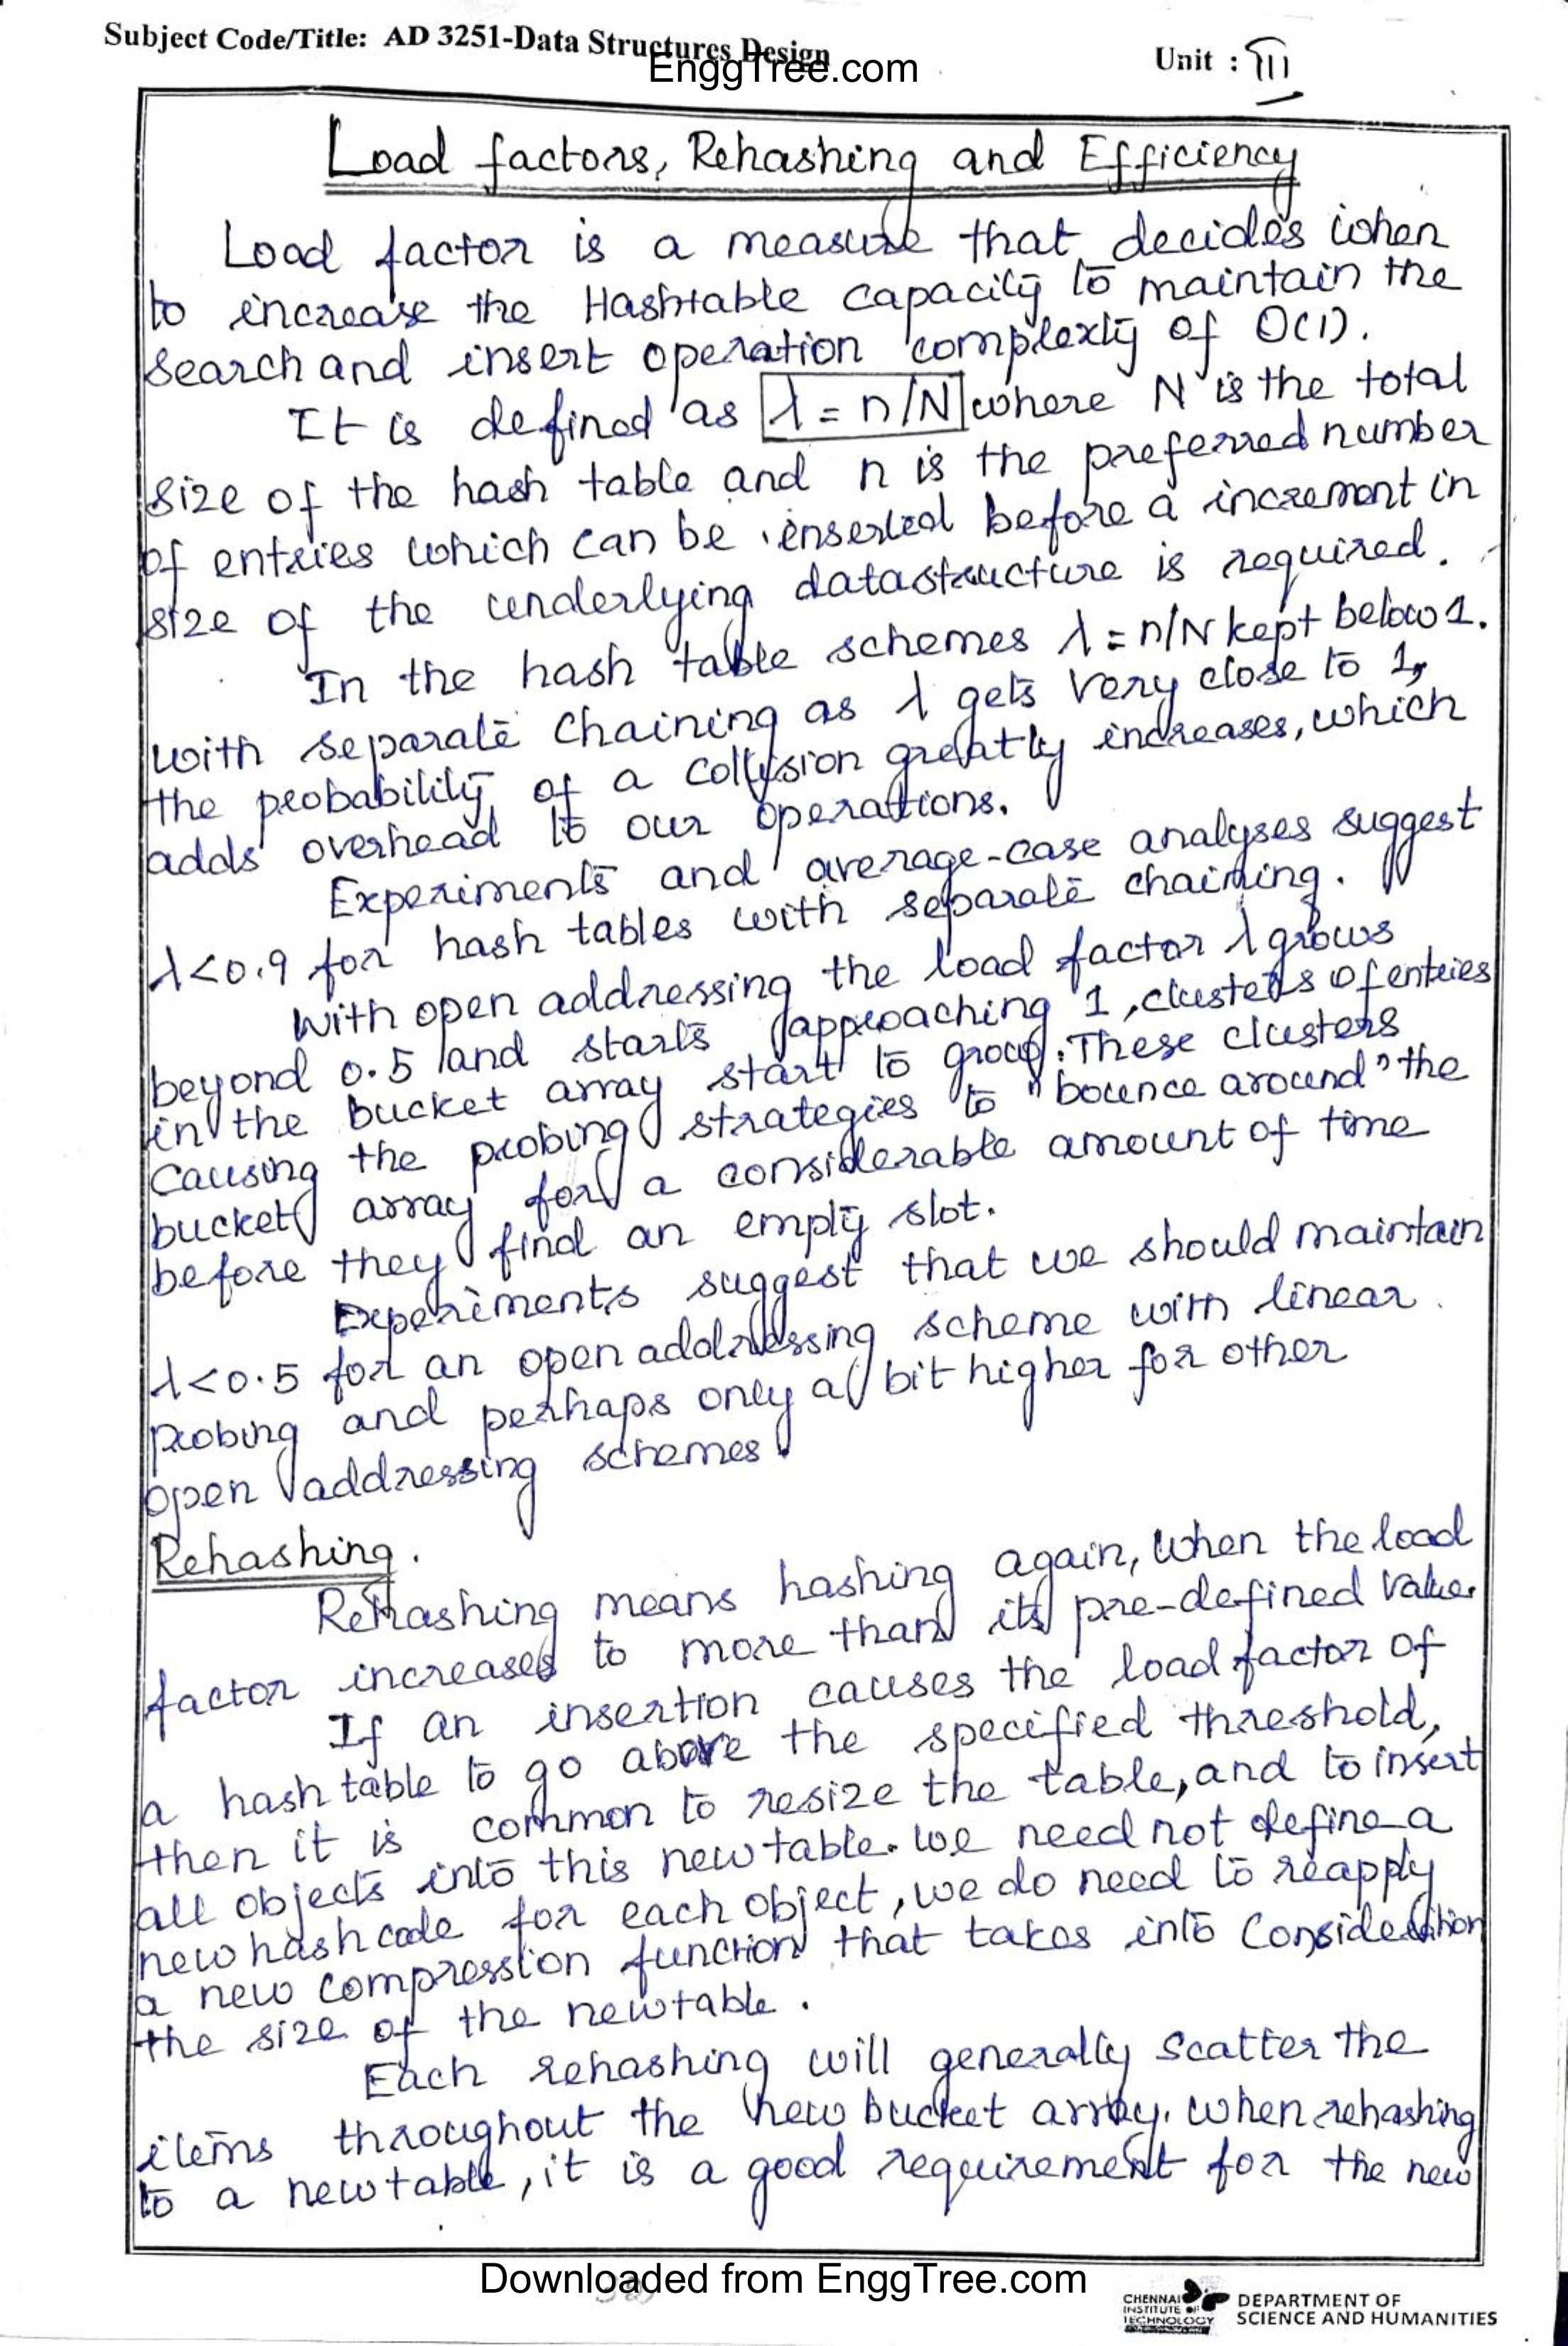 Subject Code/Title: AD 3251-Data Structures Design
EnggTree.com
Unit : III
Load factors, Rehashing and Efficiency
Load factor is a measure that decides when
to increase the Hashtable capacity to maintain the
search and insert operation complexity of O(1).
It is defined as λ = n/N where N is the total
size of the hash table and n is the preferred number
of entries which can be inserted before a increment in
size of the underlying datastructure is required.
In the hash table schemes λ = n/N kept below 1.
with separate chaining as λ gets very close to 1,
the probability of a collision greatly increases, which
adds overhead to our operations.
Experiments and average-case analyses suggest
λ<0.9 for hash tables with separate chaining.
With open addressing the load factor λ grows
beyond 0.5 and starts approaching 1, clusters of entries
in the bucket array start to group. These clusters
causing the probing strategies to "bounce around" the
bucket array for a considerable amount of time
before they find an empty slot.
Experiments suggest that we should maintain
λ<0.5 for an open addressing scheme with linear
probing and perhaps only a bit higher for other
open addressing schemes
Rehashing.
Rehashing means hashing again, when the load
factor increases to more than its pre-defined value.
If an insertion causes the load factor of
a hash table to go above the specified threshold,
then it is common to resize the table, and to insert
all objects into this new table. we need not define a
new hash code for each object, we do need to reapply
a new compression function that takes into consideration
the size of the new table.
Each rehashing will generally scatter the
items throughout the new bucket array. when rehashing
to a new table, it is a good requirement for the new
Downloaded from EnggTree.com
CHENNAI
INSTITUTE OF
TECHNOLOGY
DEPARTMENT OF
SCIENCE AND HUMANITIES